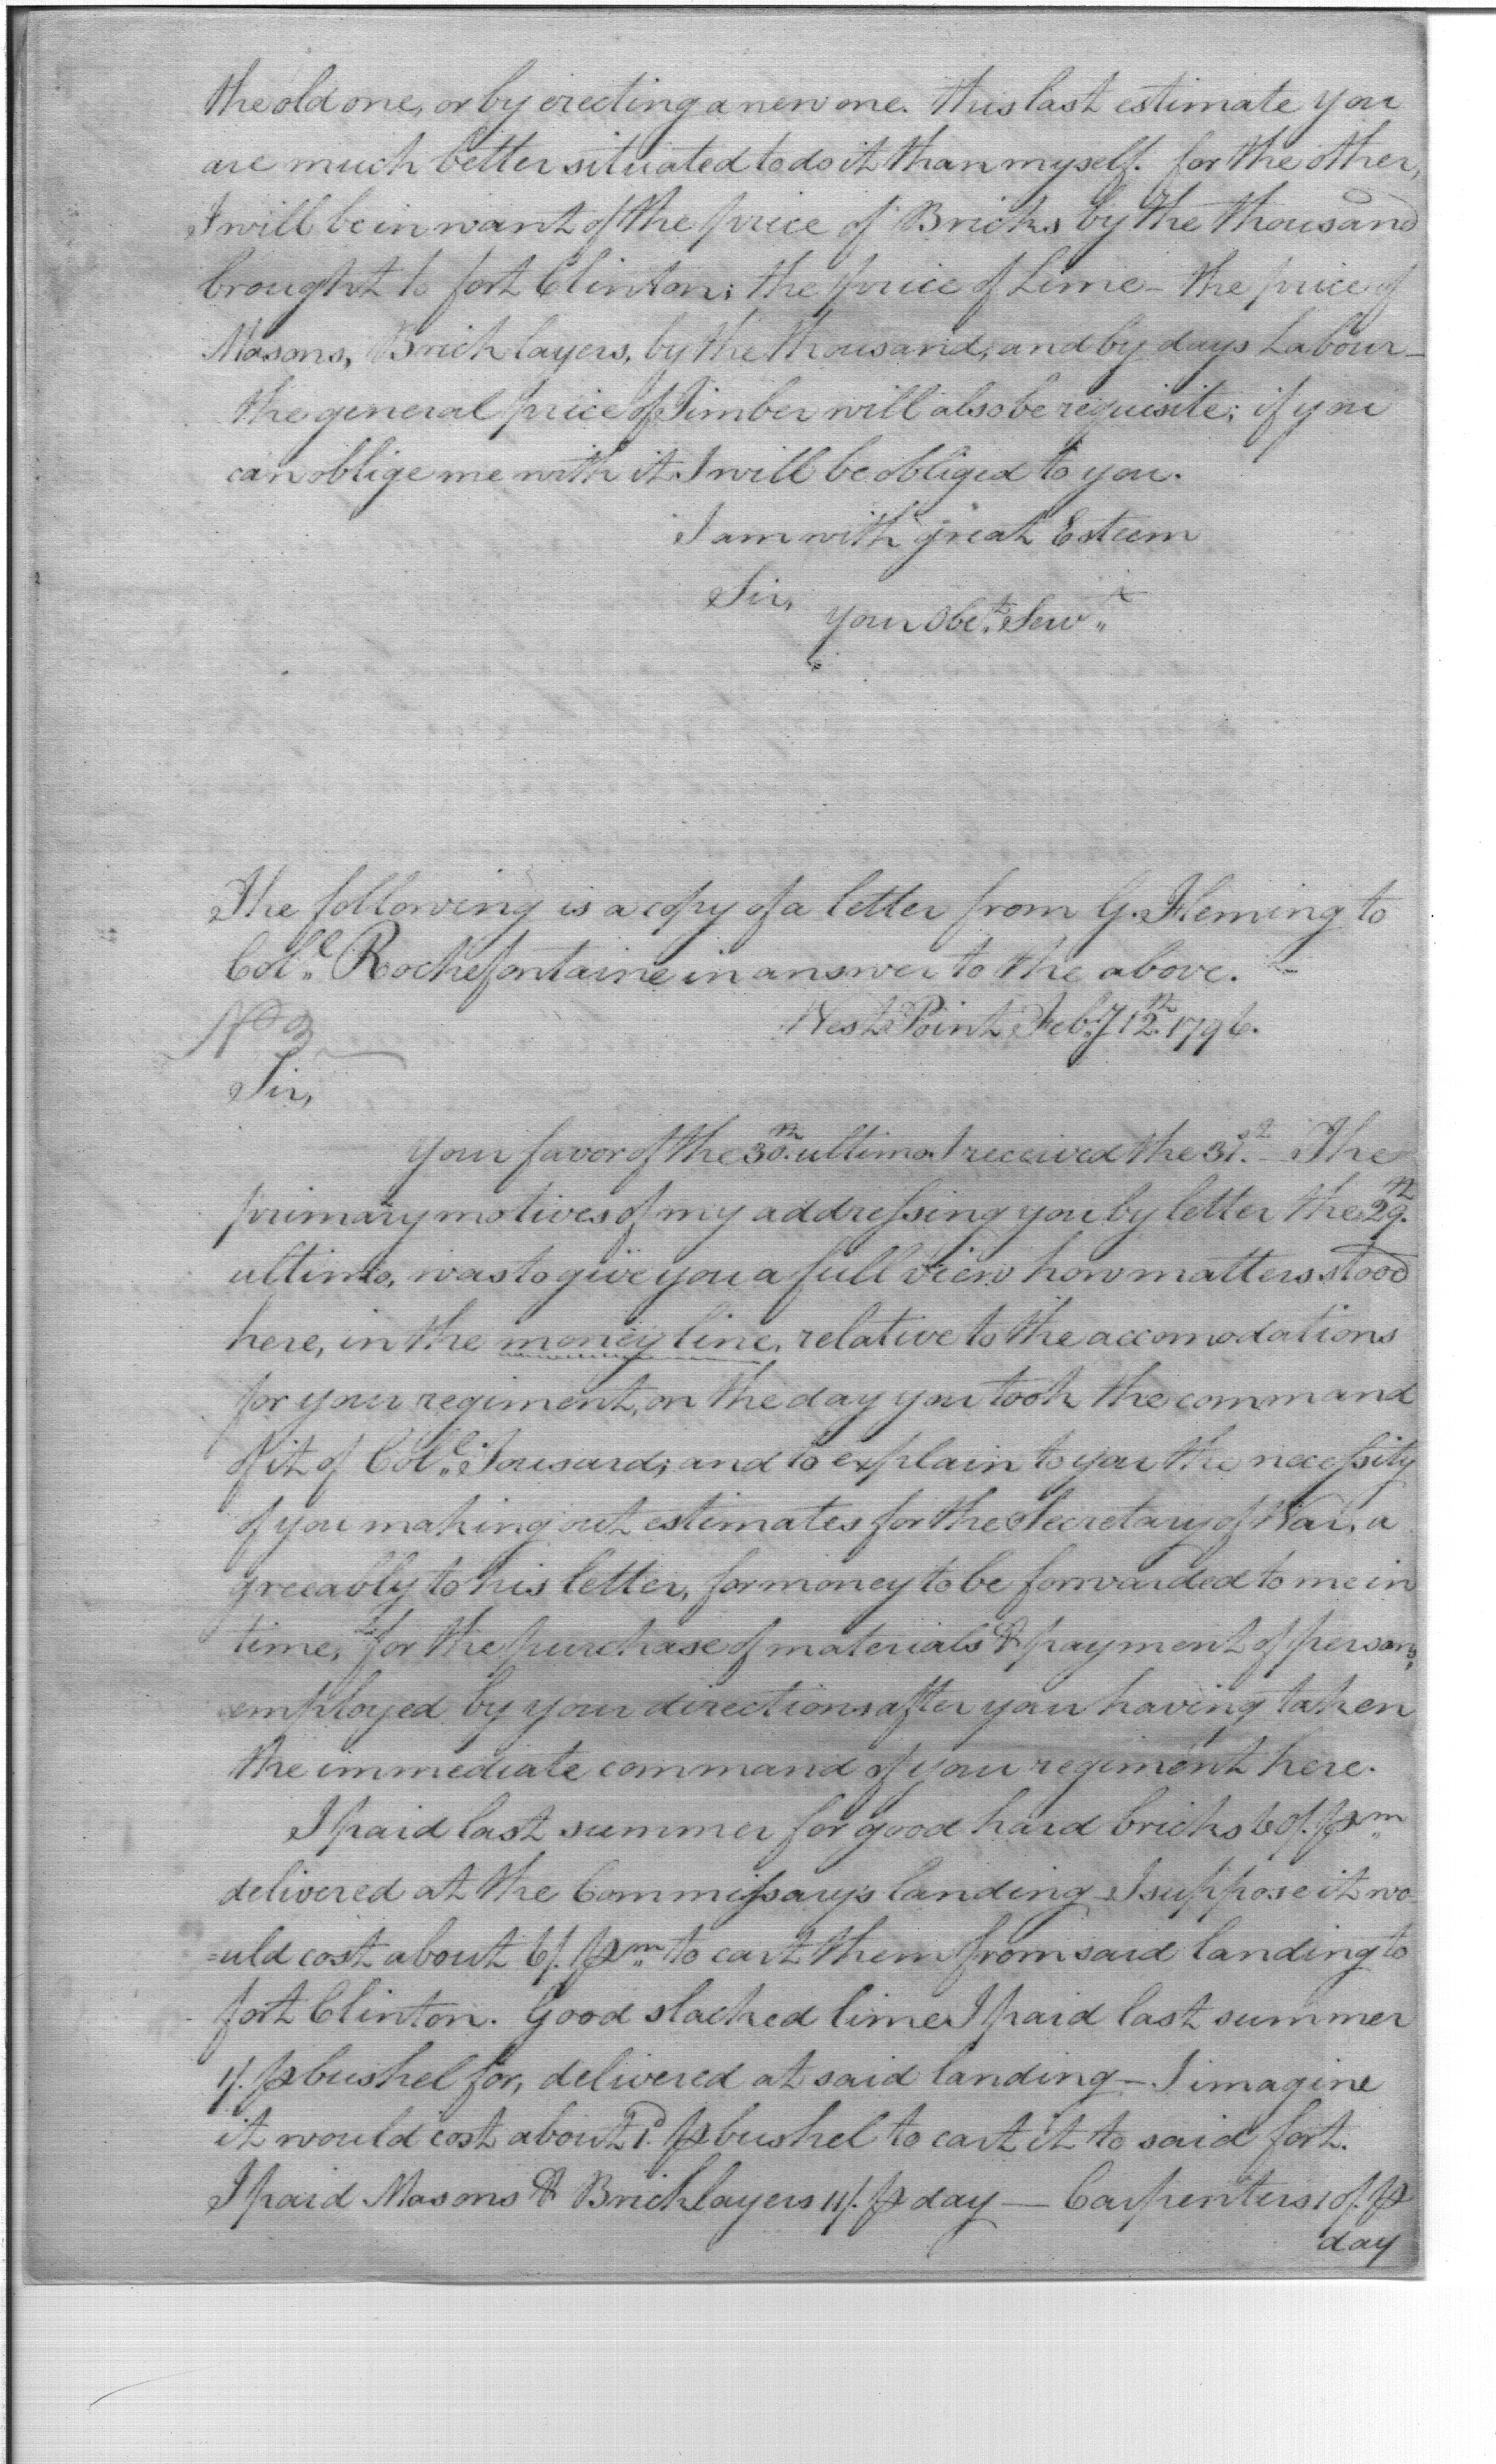 the old one, or by erecting a new one. this last estimate you
are much better situated to do it than myself. for the other,
I will be in want of the price of Bricks by the thousand
brought to fort Clinton; the price of Lime – the price of
Masons, Brick layers, by the thousand, and by days Labour –
the general price of Timber will also be requisite; if you
can oblige me with it I will be obliged to you.
I am with great Esteem
Sir,
your Obet. Servt.
The following is a copy of a letter from G. Fleming to
Coll. Rochefontaine in answer to the above. –
West Point Feby 12th. 1796.
No 3
Sir,
your favor of the 30th. ultimo I received the 31st. – The
primary motives of my addressing you by letter the 29th.
ultimo, was to give you a full view how matters stood
here, in the money line, relative to the accomodations
for your regiment, on the day you took the command
of it of Coll. Tousard; and to explain to you the necessity
of you making out estimates for the Secretary of War, a
greeably to his letter, for money to be forwarded to me in
time, for the purchase of materials & payment of persons,
employed by your directions after you having taken
the immediate command of your regiment here.
I paid last summer for good hard bricks 60/. ⅌ m
delivered at the Commissary's landing – I suppose it wo
=uld cost about 6/. ⅌ m to cart them from said landing to
fort Clinton. Good slacked lime I paid last summer
1/. ⅌ bushel for, delivered at said landing – I imagine
it would cost about 1d. ⅌ bushel to cart it to said fort.
I paid Masons & Bricklayers 11/. ⅌ day — Carpenters 10/. ⅌
day